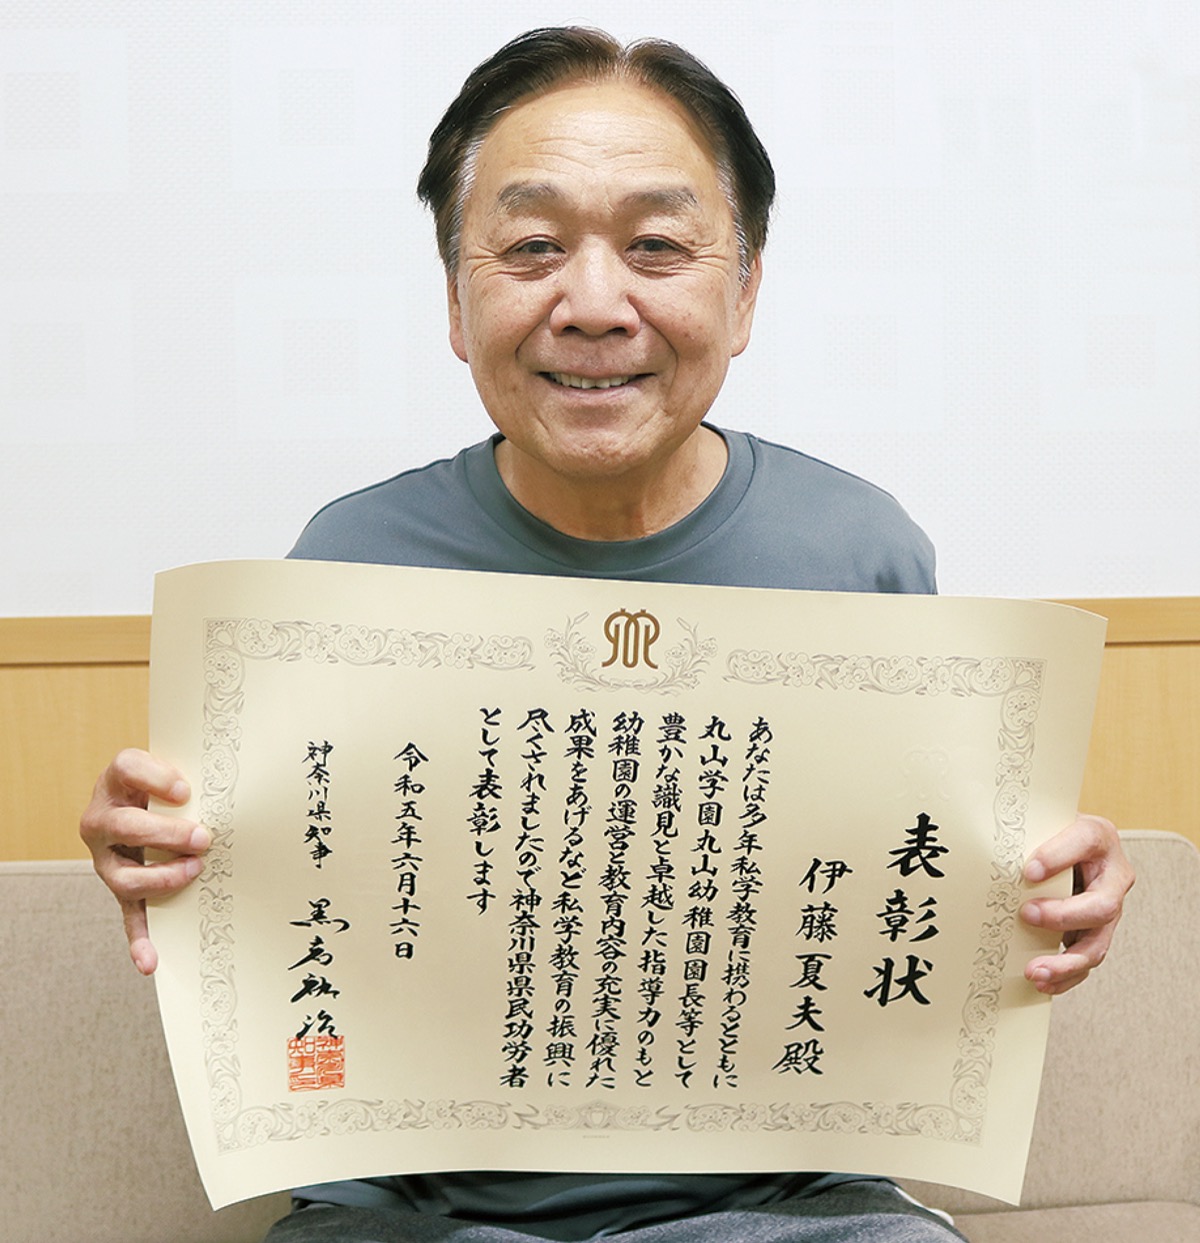 表彰状
伊藤夏夫殿
あなたは多年私学教育に携わるとともに
丸山学園丸山幼稚園園長等として
豊かな識見と卓越した指導力のもと
幼稚園の運営と教育内容の充実に優れた
成果をあげるなど私学教育の振興に
尽くされましたので神奈川県県民功労者
として表彰します
令和五年六月十六日
神奈川県知事 黒岩祐治